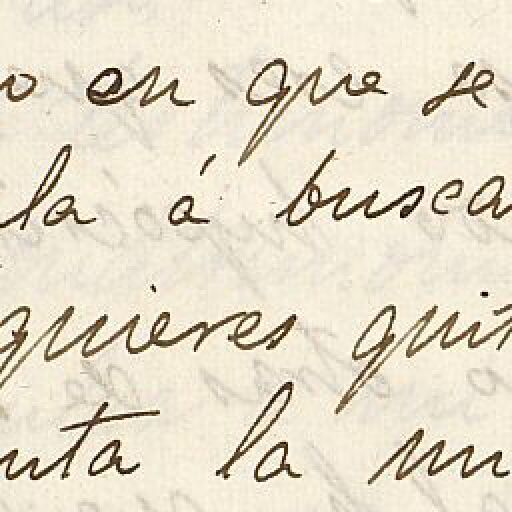 o en que se
la á busca
quieres quit
nta la mu